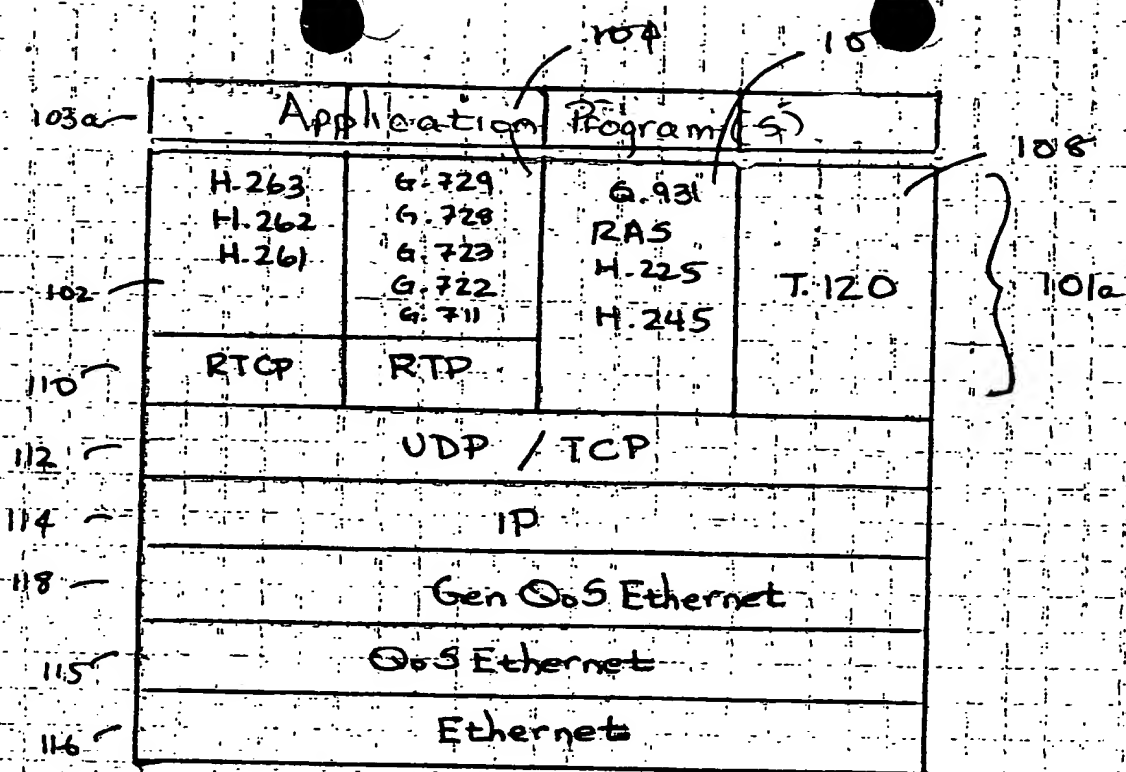 104
10
103a
Application Program(s)
108
H.263
H.262
H.261
G.729
G.728
G.723
G.722
G.711
Q.931
RAS
H.225
H.245
T.120
102
101a
110
RTCP
RTP
112
UDP / TCP
114
IP
118
Gen QoS Ethernet
115
QoS Ethernet
116
Ethernet